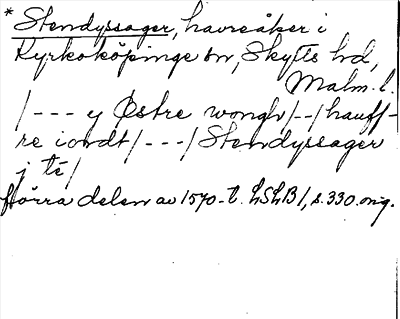 * Stendyssager, havreåker i
Kyrkoköpinge sn, Skytts hd,
Malm. l.
/--- y Østre wongh/--/hauff-
re iordt/---/Stendyssager
j té/
förra delen av 1570-t. LSLB1, s. 330. orig.